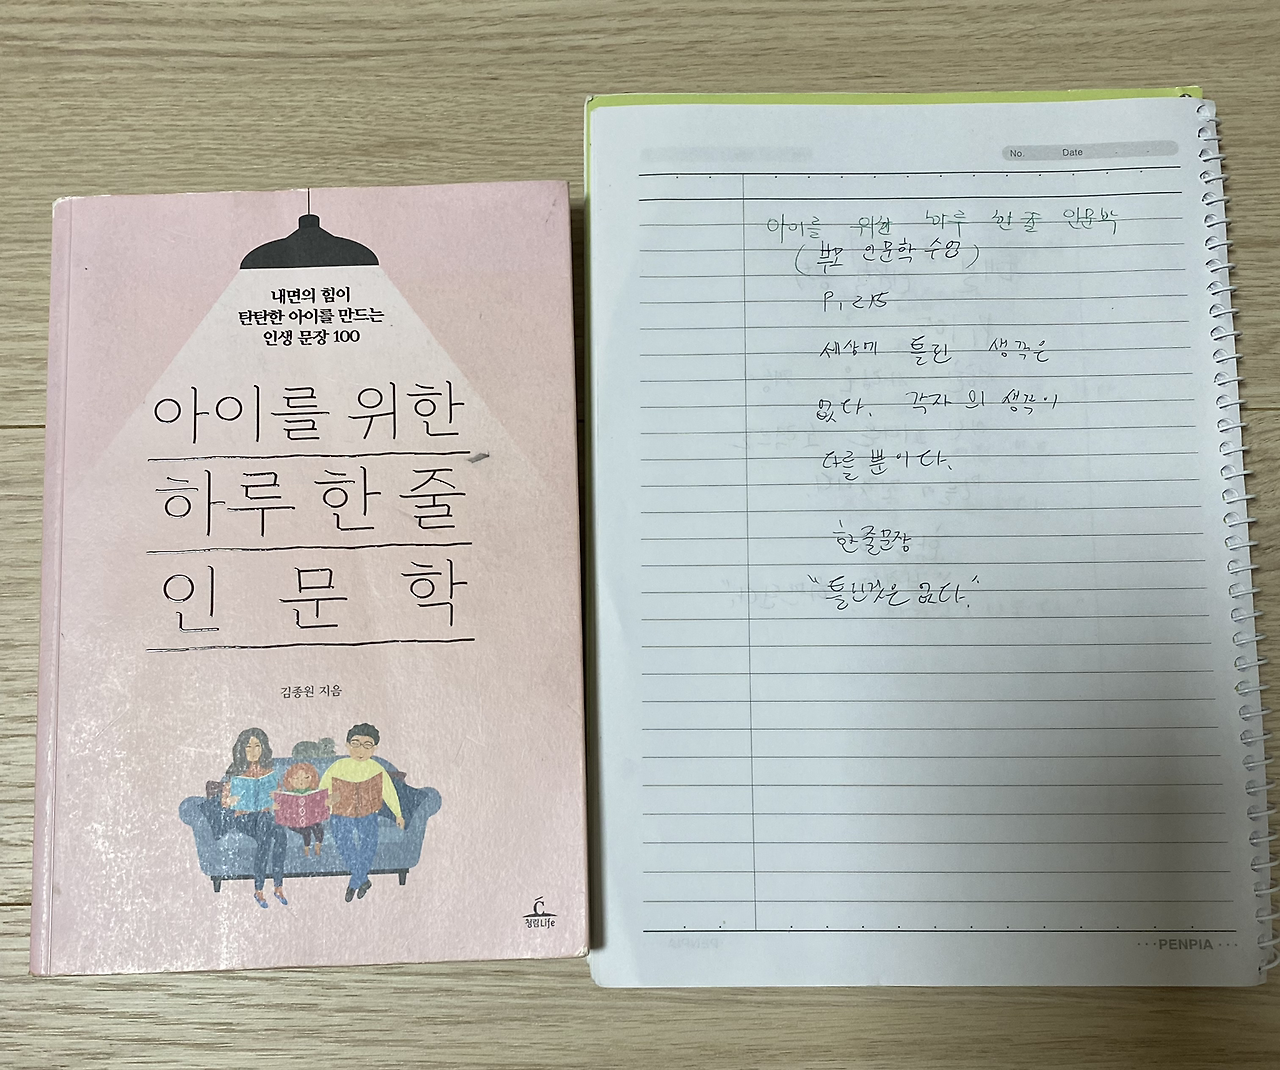 내면의 힘이
탄탄한 아이를 만드는
인생 문장 100
아이를 위한
하루 한 줄
인 문 학
김종원 지음
청림Life
No. Date
아이를 위한 하루 한 줄 인문학
(부모 인문학 수업)
P. 215
세상에 틀린 생각은
없다. 각자의 생각이
다를 뿐이다.
한줄문장
"틀린것은 없다."
PENPIA